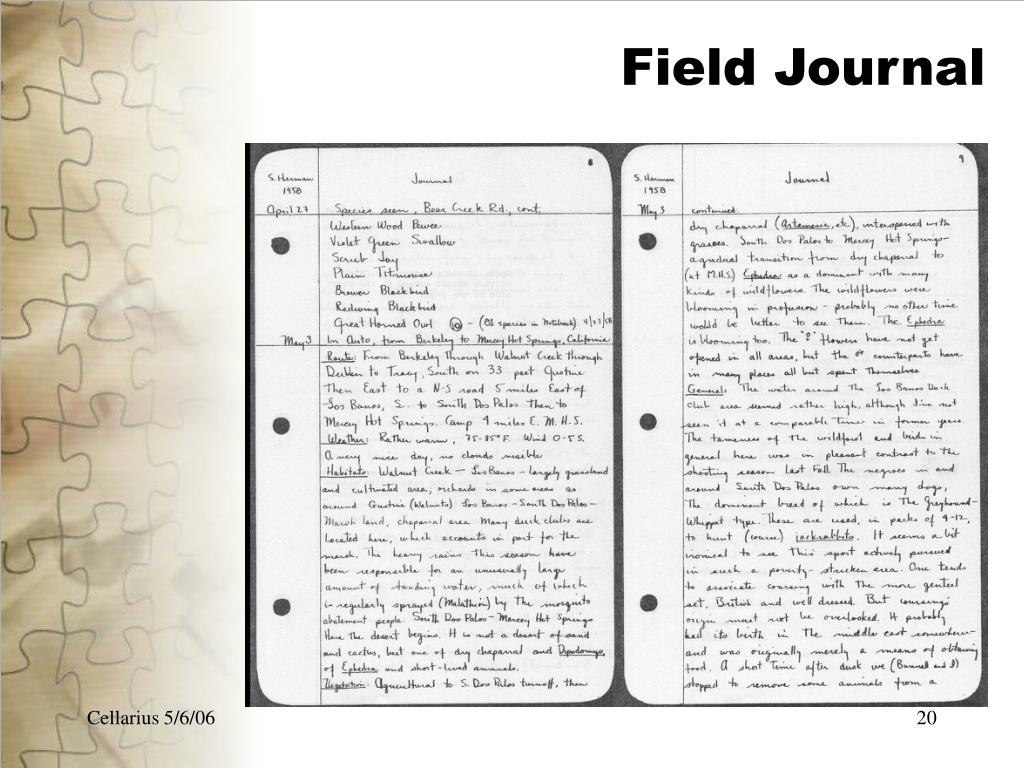 Field Journal
8
S. Herman
1958
Journal
April 27
Species seen, Bear Creek Rd., cont.
Western Wood Pewee
Violet Green Swallow
Scrub Jay
Plain Titmouse
Brewer Blackbird
Redwing Blackbird
Great Horned Owl – (species in Notebook) 4/27/58
May 3
In Auto, from Berkeley to Mercey Hot Springs, California
Route: From Berkeley through Walnut Creek through
Dublin to Tracy, South on 33 past Gustine
Then East to a N-S road 5 miles East of
Los Banos, S. to South Dos Palos then to
Mercey Hot Springs. Camp 4 miles E. M.H.S.
Weather: Rather warm, 75-85°F. Wind 0-5 S.
A very nice day, no clouds visible
Habitats: Walnut Creek – Los Banos – largely grassland
and cultivated area; orchards in some areas as
around Gustine (Walnuts) Los Banos – South Dos Palos –
Marsh land, chaparral area. Many duck clubs are
located here, which accounts in part for the
marsh. The heavy rains this season have
been responsible for an unusually large
amount of standing water, much of which
is regularly sprayed (Malathion) by the mosquito
abatement people. South Dos Palos – Mercey Hot Springs
Here the desert begins. It is not a desert of sand
and cactus, but one of dry chaparral and Dipodomys,
of Ephedra and short-lived annuals.
Vegetation: Agricultural to S. Dos Palos turnoff, then
9
S. Herman
1958
Journal
May 3
continued.
dry chaparral (Artemesia, etc), interspersed with
grasses. South Dos Palos to Mercey Hot Springs –
a gradual transition from dry chaparral to
(at M.H.S) Ephedra as a dominant with many
kinds of wildflowers. The wildflowers were
blooming in profusion – probably no other time
would be better to see them. The Ephedra
is blooming too. The "♀" flowers have not yet
opened in all areas, but the ♂ counterparts have
in many places all but spent themselves
General: The water around the Los Banos Duck
club area seemed rather high, although I've not
seen it at a comparable time in former years.
The tameness of the wildfowl and birds in
general here was in pleasant contrast to the
shooting season last Fall. The negroes in and
around South Dos Palos own many dogs,
The dominant breed of which is the Greyhound –
Whippet type. These are used, in packs of 4-12,
to hunt (course) jackrabbits. It seems a bit
ironical to see this sport actively pursued
in such a poverty-stricken area. One tends
to associate coursing with the more genteel
set, British and well dressed. But coursings'
origin must not be overlooked. It probably
had its birth in the middle east somewhere –
and was originally merely a means of obtaining
food. A short time after dusk we (Bunnell and I)
stopped to remove some animals from a
Cellarius 5/6/06
20